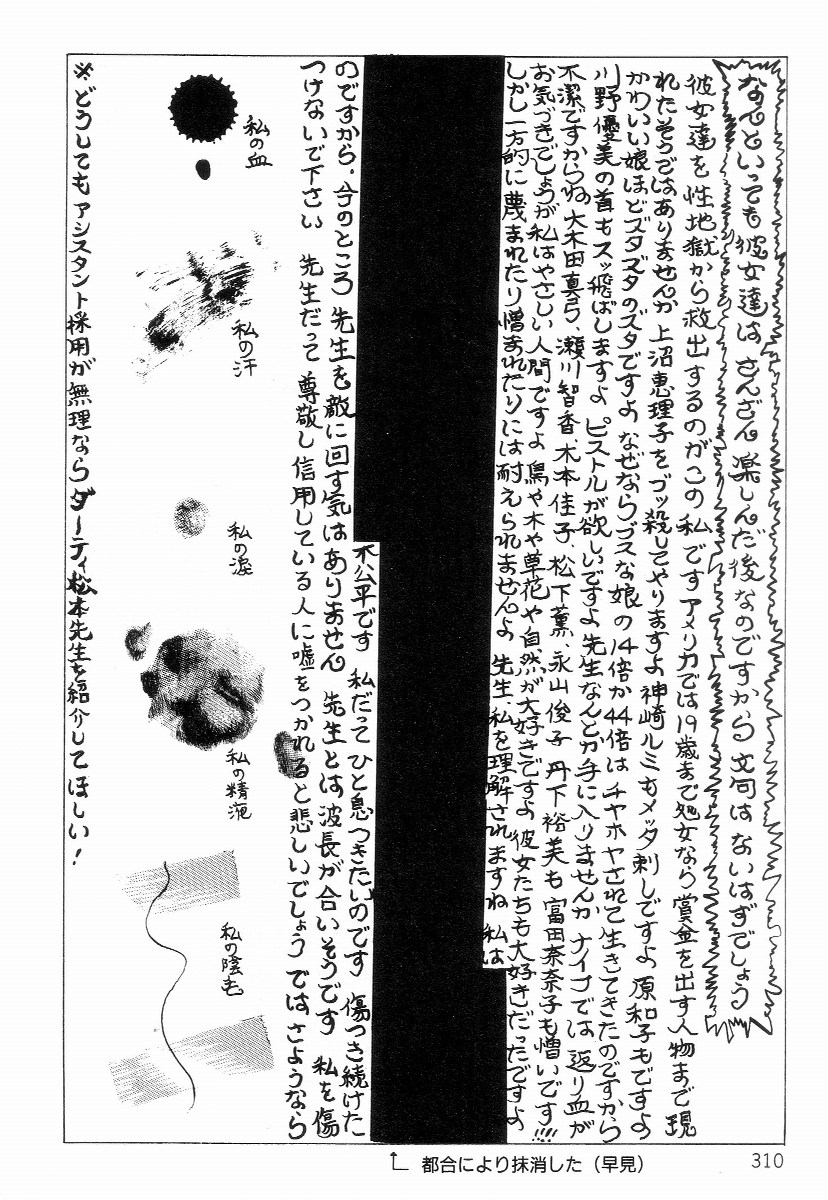 なんといっても彼女達は さんざん楽しんだ後なのですから 文句はないはずでしょう
彼女達を性地獄から救出するのがこの私です アメリカでは19歳まで処女なら賞金を出す人物まで現
れたそうではありませんか 上沼恵理子をブッ殺してやりますよ 神崎ルミもメッタ刺しですよ 原和子もですよ
かわいい娘ほどズタズタのズタですよ なぜならブスな娘の14倍か44倍は チヤホヤされて生きてきたのですから
川野優美の首もスッ飛ばしますよ ピストルが欲しいですよ 先生なんとか手に入りませんか ナイフでは返り血が
不潔ですからね 大木田真弓、瀬川智香、木本佳子、松下薫、永山俊子 丹下裕美も 富田奈奈子も憎いです!!!
お気づきでしょうが私はやさしい人間ですよ 鳥や木や草花や自然が大好きですよ 彼女たちも大好きだったですよ
しかし一方的に蔑まれたり憎まれたりには耐えられませんよ 先生、私を理解されますね 私は
不公平です 私だって ひと息つきたいのです 傷つき続けた
のですから、今のところ 先生を敵に回す気はありません 先生とは波長が合いそうです 私を傷
つけないで下さい 先生だって 尊敬し信用している人に嘘をつかれると悲しいでしょう ではさようなら
私の血
私の汗
私の涙
私の精液
私の陰毛
※どうしてもアシスタント採用が無理ならダーティ松本先生を紹介してほしい!
都合により抹消した（早見）
310